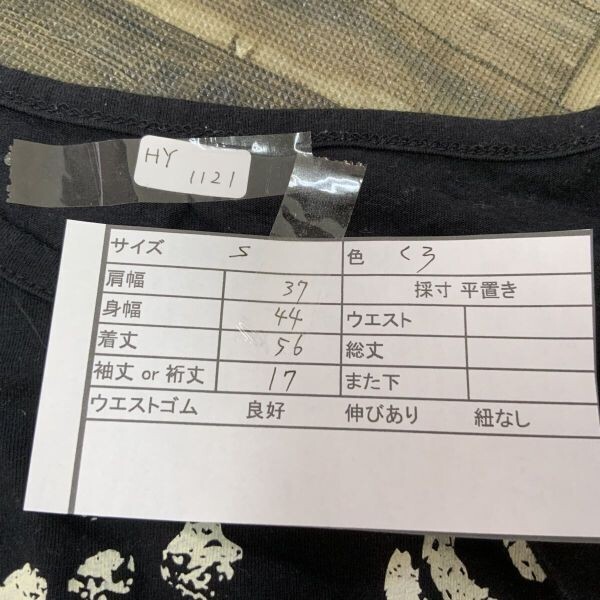 HY
1121
サイズ S 色 くろ
肩幅 37 採寸 平置き
身幅 44 ウエスト
着丈 56 総丈
袖丈 or 裄丈 17 また下
ウエストゴム 良好 伸びあり 紐なし